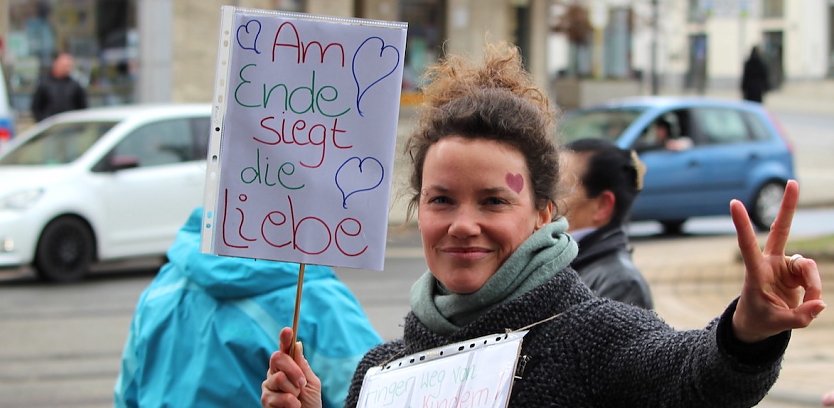 Am
Ende
siegt
die
Liebe
Finger weg von
Kindern!